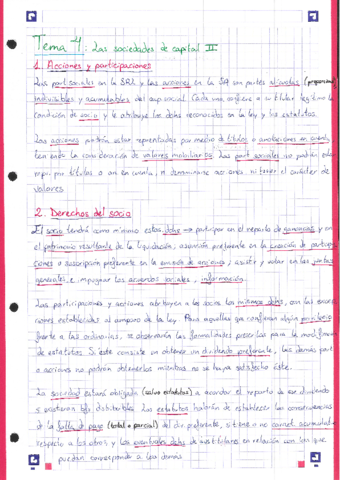 Tema 4: Las sociedades de capital II
1. Acciones y participaciones
Las part sociales en la SRL y las acciones en la SA son partes alícuotas (proporcional
indivisibles y acumulables del cap social. Cada una confiere a su titular legítimo la
condición de socio y le atribuye los dchos reconocidos en la ley y los estatutos.
Las acciones podrán estar representadas por medio de títulos o anotaciones en cuenta,
teniendo la consideración de valores mobiliarios. Las part sociales no podrán estar
repr por títulos o an en cuenta, ni denominarse acciones, ni tener el carácter de
valores
2. Derechos del socio
El socio tendrá como mínimo estos dchos → participar en el reparto de ganancias y en
el patrimonio resultante de la liquidación, asunción preferente en la creación de particip
ciones o suscripción preferente en la emisión de acciones, asistir y votar en las juntas
generales e impugnar los acuerdos sociales, información.
Las participaciones y acciones atribuyen a los socios los mismos dchos, con las excep
ciones establecidas al amparo de la ley. Para aquellas que confieran algún privilegio
frente a las ordinarias, se observarán las formalidades prescritas para la modif
de estatutos. Si este consiste en obtener un dividendo preferente, las demás part
o acciones no podrán obtenerlos mientras no se haya satisfecho éste.
La sociedad estará obligada (salvo estatutos) a acordar el reparto de ese dividendo
si existieran bfs distribuibles. Los estatutos habrán de establecer las consecuencias
de la falta de pago (total o parcial) del div preferente, si tiene o no caract acumulado
respecto a los otros y los eventuales dchos de sus titulares en relación con los que
puedan corresponder a las demás